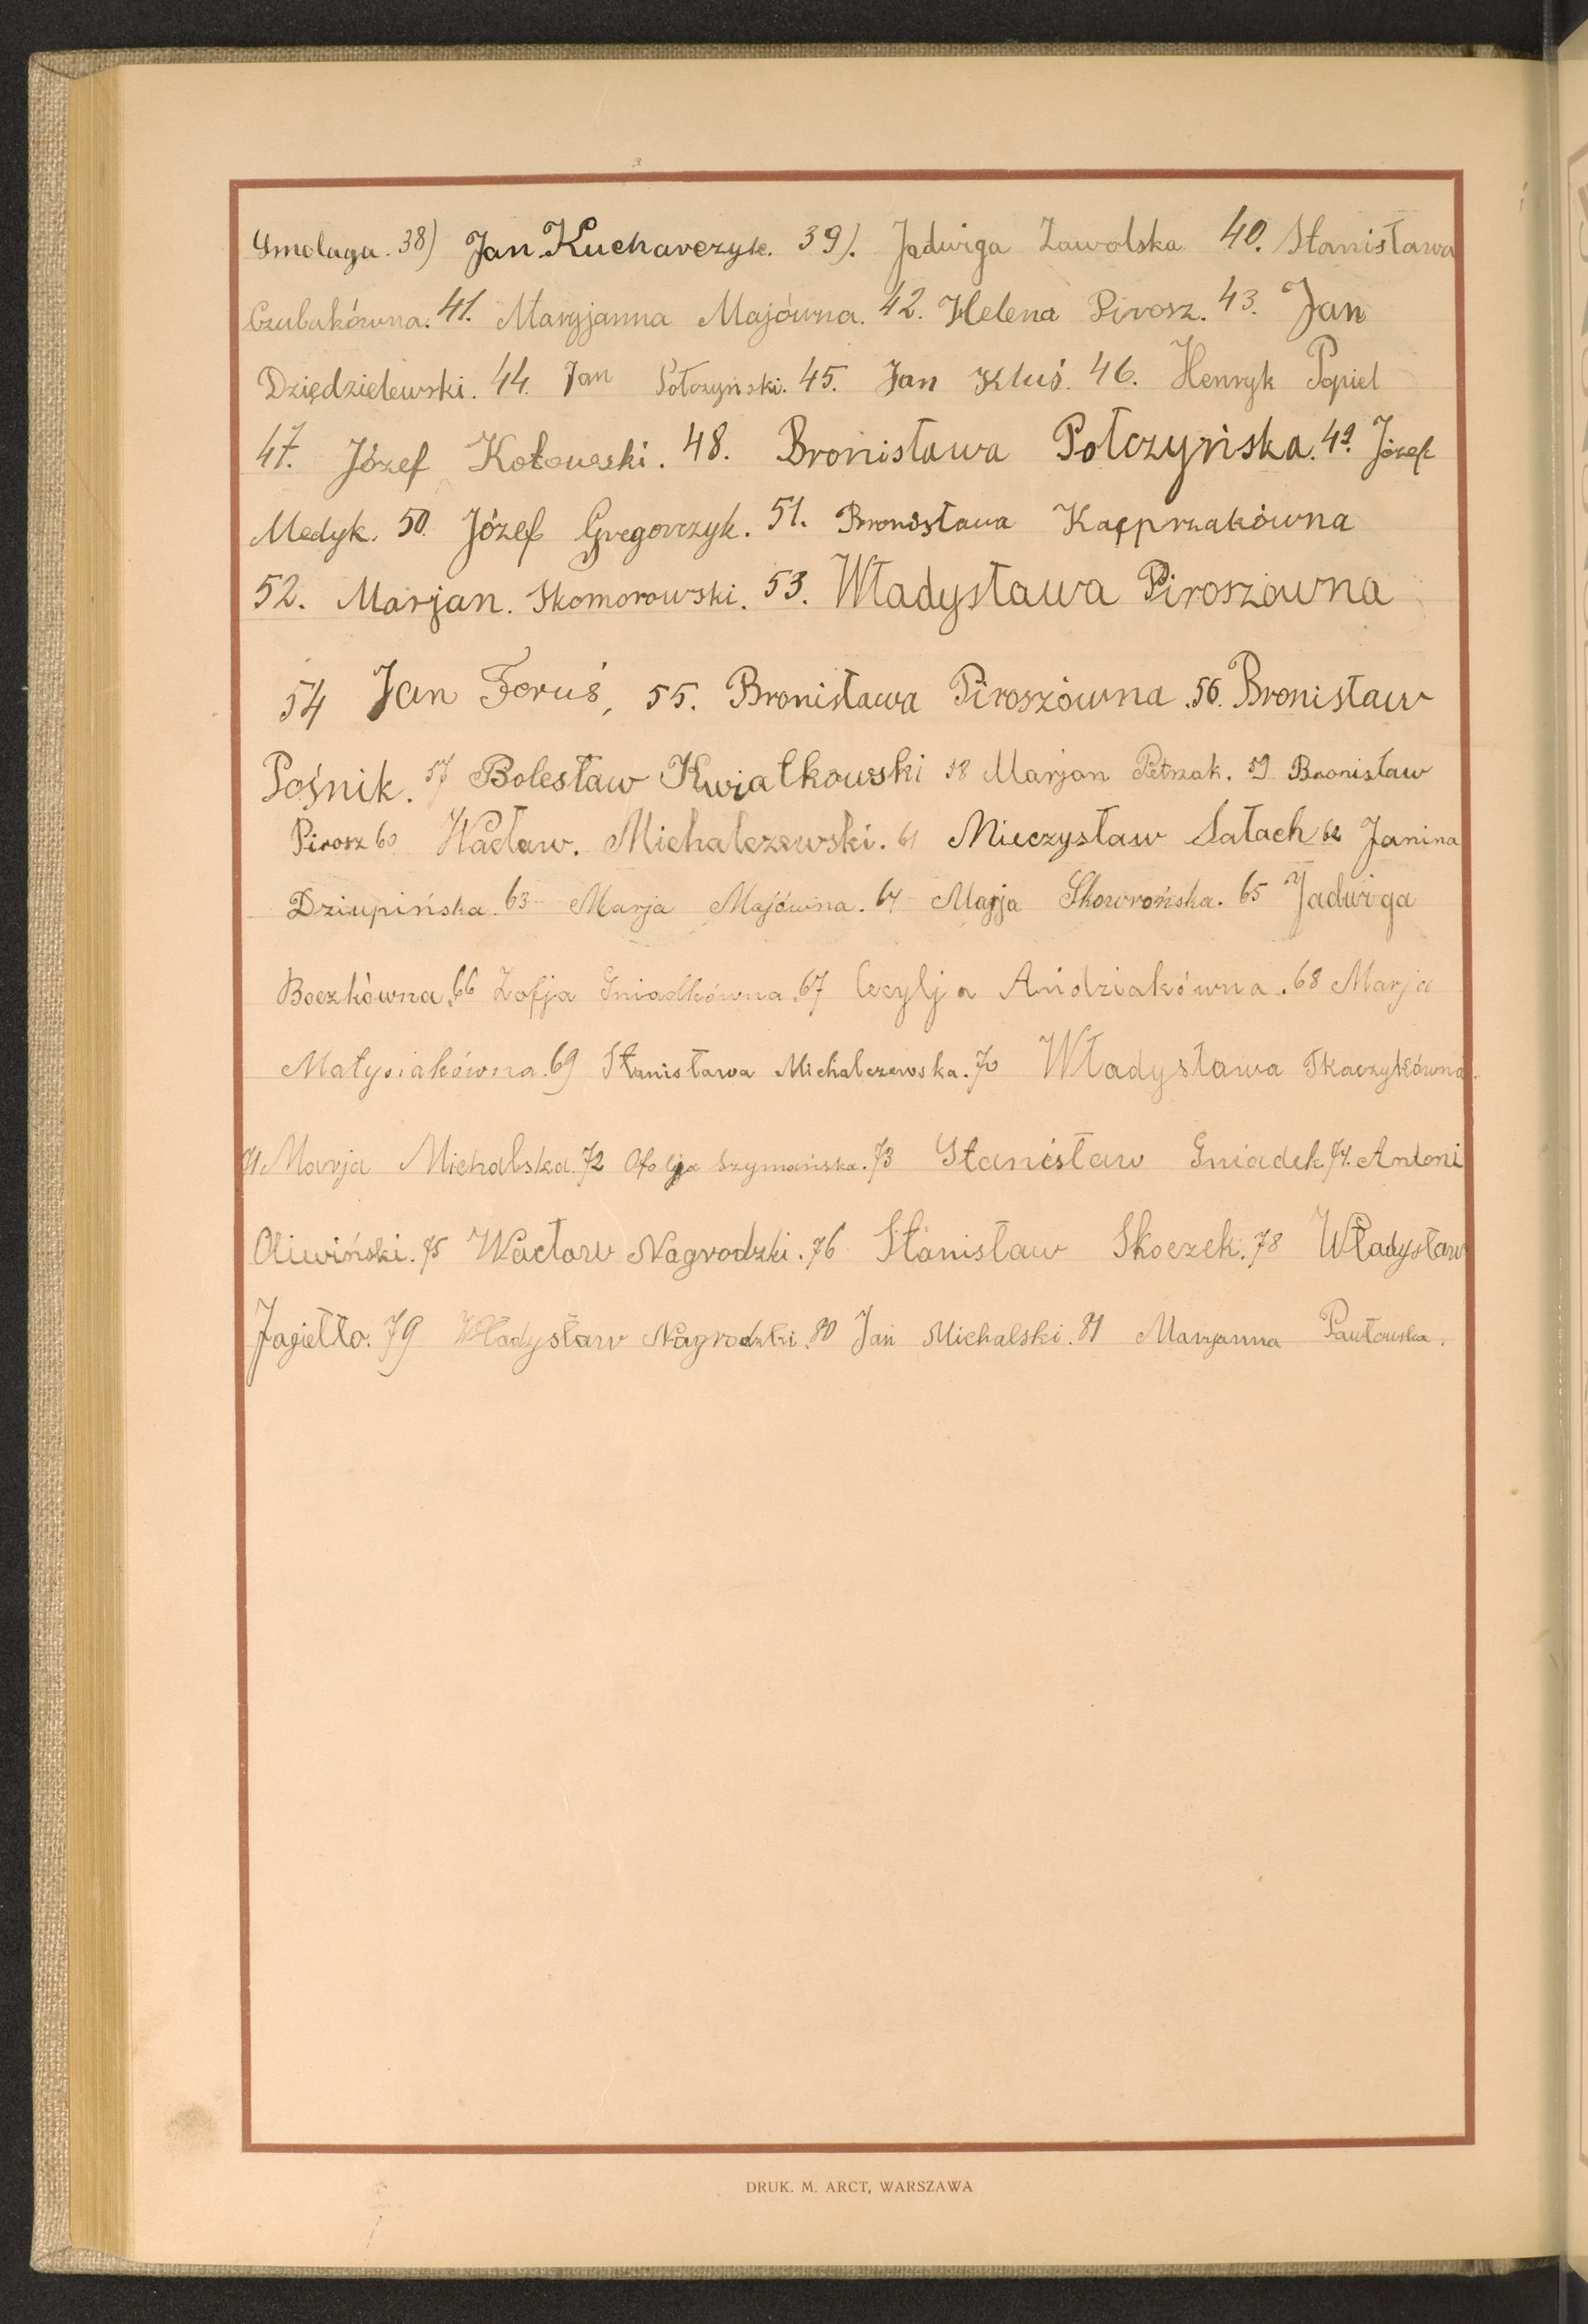 Smolaga. 38) Jan Kucharczyk. 39). Jadwiga Zawolska 40. Stanisława
Czubakówna. 41. Maryjanna Majówna. 42. Helena Pirosz. 43. Jan
Dziędzielewski. 44. Jan Połczyński. 45. Jan Kluś. 46. Henryk Popiel
47. Józef Kotowski. 48. Bronisława Połczyńska. 49. Józef
Medyk. 50. Józef Gregorczyk. 51. Bronisława Kacprzakówna
52. Marjan. Skomorowski. 53. Władysława Piroszówna
54 Jan Foruś, 55. Bronisława Piroszówna. 56. Bronisław
Pośnik. 57 Bolesław Kwiatkowski 58 Marjan Petrzak. 59. Bronisław
Pirosz 60 Wacław. Michalczewski. 61 Mieczysław Sałach 62 Janina
Dziupińska. 63 Marja Majówna. 64 Marja Skowrońska. 65 Jadwiga
Boczkówna. 66 Zofja Gniadkówna. 67 Cecylja Andziakówna. 68 Marja
Matysiakówna. 69 Stanisława Michalczewska. 70 Władysława Tkaczykówna.
71 Marja Michalska. 72 Ofelja Szymańska. 73 Stanisław Gniadek. 74. Antoni
Oliwiński. 75 Wacław Nagrodzki. 76 Stanisław Skoczek. 78 Władysław
Jagiełło. 79 Władysław Nagrodzki. 80 Jan Michalski. 81 Marjanna Pawłowska.
DRUK. M. ARCT, WARSZAWA